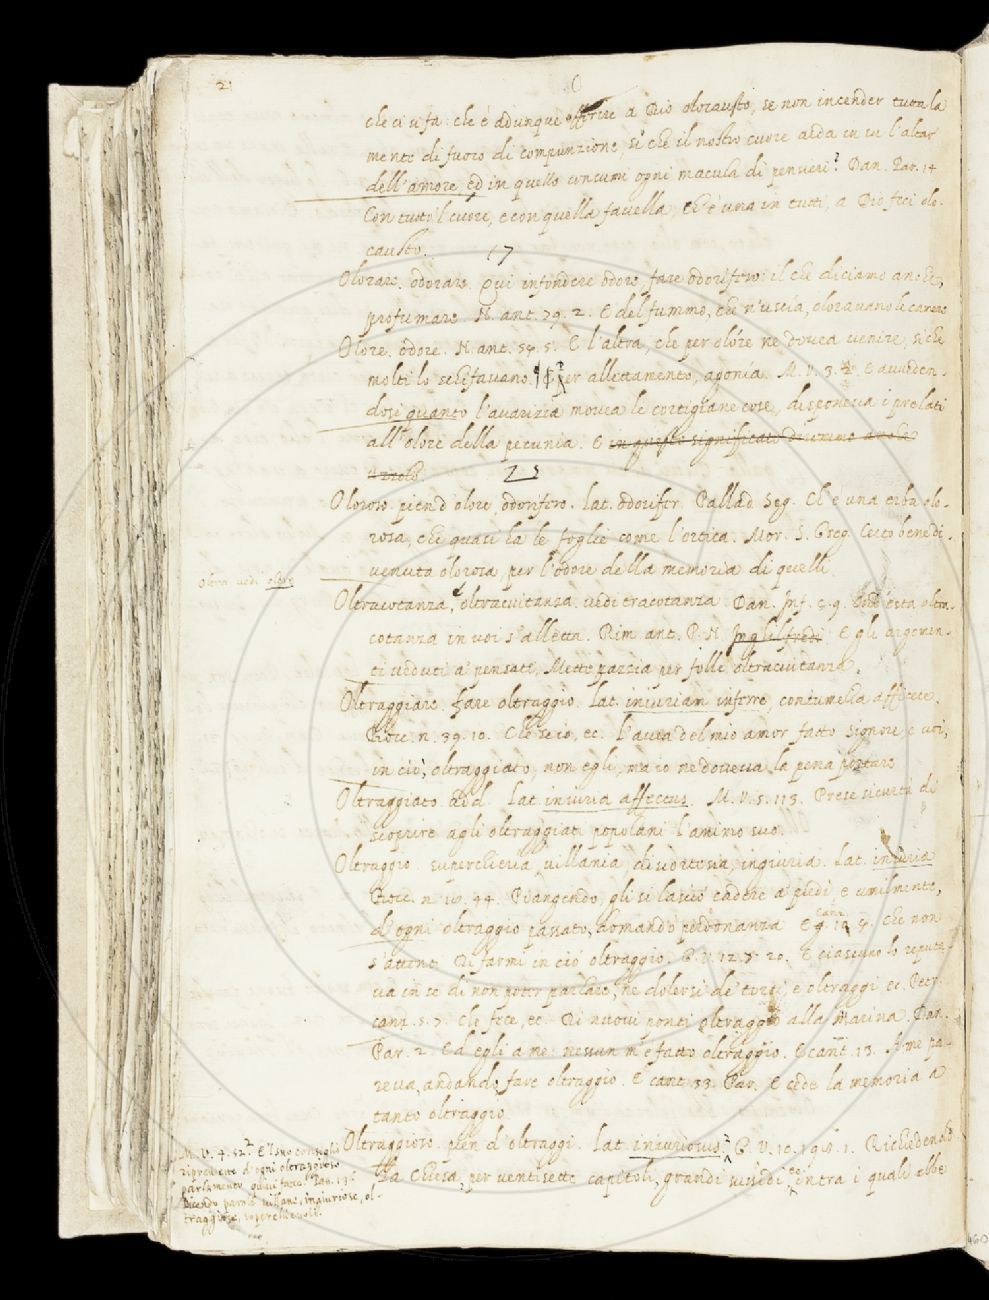 21
O
che ci si fa: che è adunque offerire a Dio olocausto, se non incender tutta la
mente di fuoco di compunzione, sì che il nostro cuore arda in su l'altar
dell'amore, ed in quello consumi ogni macula di pensieri? Dan. Par. 14
Con tutto 'l cuore, e con quella favella, Ch'è una in tutti, a Dio feci olo-
causto.
17
Olorare. odorare. Qui infondere odore, fare odorifero: il che diciamo anche,
profumare. N. ant. 79. 2. E del fummo, che n'uscia, oloravano le carni
Olore. odore. N. ant. 54. 5. E l'altra, che per olore ne dovea venire, si che
molti lo schifavano. Per allettamento, agonia. M. V. 3. E avveden-
dosi quanto l'avarizia movea le cortigiane cose, disponeva i prelati
all'olore della pecunia. E in questo significato diremmo anche
25
Oloroso. pien d'olore, odorifero. Lat. odorifer. Pallad. Seg. Ch'è una erba olo-
rosa, che quasi ha le foglie come l'ortica. Mor. S. Greg. Certo benedi-
venuta olorosa, per l'odore della memoria di quelli
Oltra vedi oltre
Oltracotanza, e oltracuitanza. vedi tracotanza. Dan. Inf. c. 9. Ond'esta oltra-
cotanza in voi s'alletta. Rim. ant. P. N. Inghilfredi E gli argomen-
ti veduti a' pensati, Mette pazzia per folle oltracuitanza.
Oltraggiare. Fare oltraggio. Lat. iniuriam inferre, contumelia afficere.
Bocc. n. 39. 10. Che se io, ec. l'avea del mio amor fatto signore, e voi,
in ciò, oltraggiato, non egli, ma io ne doveva la pena portare
Oltraggiato. add. Lat. iniuria affectus. M. V. 5. 113. Prese sicurtà di
scoprire agli oltraggiati popolani l'animo suo.
Oltraggio. superchieria, villania, discortesia, ingiuria. Lat. iniuria
Bocc. n. 44. Piangendo, gli si lasciò cadere a' piedi, e umilmente,
d'ogni oltraggio passato, domandò perdonanza. E canz. Che non
s'attent Di farmi in ciò oltraggio. G. V. 12. 20. E ciascuno lo reputa-
va in se di non poter parlare, ne dolersi de' torti, e oltraggi ec. Petr.
canz. 5. 7. Che fece, ec. Di nuovi ponti oltraggio alla Marina. Dan.
Par. 2. Ed egli a me: nessun m'è fatto oltraggio. E cant. 13. A me pa-
reva, andando, fare oltraggio. E cant. 33. Par. E cede la memoria a
tanto oltraggio.
Oltraggioso. pien d'oltraggi. Lat. iniuriosus. G. V. 10. 1. Richiedendo
la Chiesa, per ventisette capitoli, grandi sussidi ec. intra i quali ebbe
M. V. 4. 52. E 'l suo consiglio
riprovare d'ogni oltraggioso
parlamento
Dicendo parole villane, ingiuriose, ol-
traggiose, soperchievoli.
460